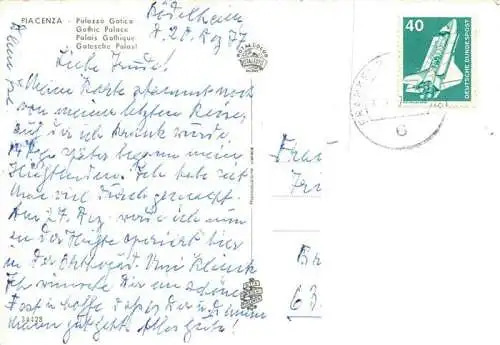 PIACENZA - Palazzo Gotico
Gothic Palace
Palais Gothique
Gotesche Palast
Rödelheim
d. 20. Aug 77
Liebe Trude!
Meine Karte stammt noch
von meiner letzten Reise,
auf der ich krank wurde,
14 Tage später begann mein
Hüftleiden. Ich habe seit
Mai viel durchgemacht.
Am 27. Aug. werde ich nun
an der Hüfte operiert hier
in der Orthopäd. Uni Klinik
Ich wünsche Dir ein schönes
Fest u. hoffe, daß es Dir u. Deinen
Lieben gut geht. Alles Gute!
38428
40
DEUTSCHE BUNDESPOST
c
Frau
Br
63